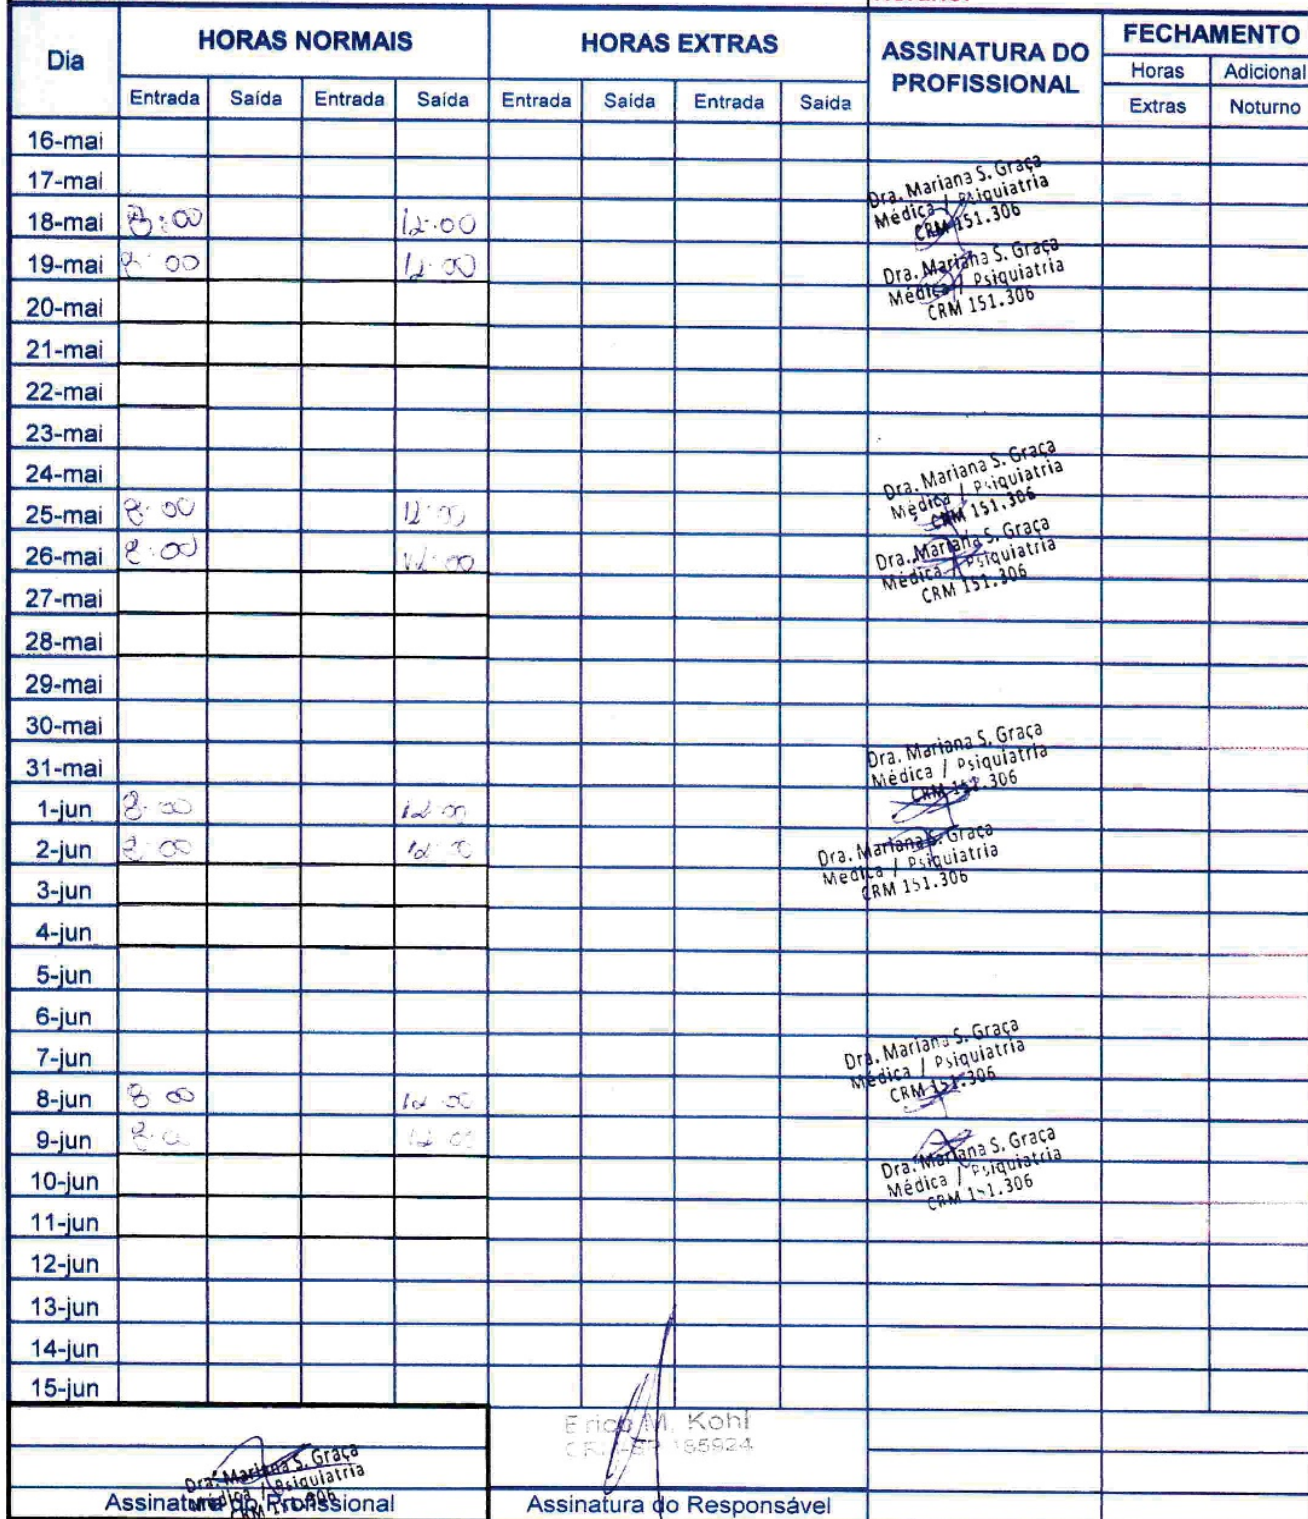 Dia HORAS NORMAIS HORAS EXTRAS ASSINATURA DO PROFISSIONAL FECHAMENTO
Entrada Saída Entrada Saída Entrada Saída Entrada Saída Horas Extras Adicional Noturno
16-mai
17-mai
18-mai 8:00 12:00 Dra. Mariana S. Graça Médica / Psiquiatria CRM 151.306
19-mai 8:00 12:00 Dra. Mariana S. Graça Médica / Psiquiatria CRM 151.306
20-mai
21-mai
22-mai
23-mai
24-mai
25-mai 8:00 12:00 Dra. Mariana S. Graça Médica / Psiquiatria CRM 151.306
26-mai 8:00 12:00 Dra. Mariana S. Graça Médica / Psiquiatria CRM 151.306
27-mai
28-mai
29-mai
30-mai
31-mai
1-jun 8:00 12:00 Dra. Mariana S. Graça Médica / Psiquiatria CRM 151.306
2-jun 8:00 12:00 Dra. Mariana S. Graça Médica / Psiquiatria CRM 151.306
3-jun
4-jun
5-jun
6-jun
7-jun
8-jun 8:00 12:00 Dra. Mariana S. Graça Médica / Psiquiatria CRM 151.306
9-jun 8:00 12:00 Dra. Mariana S. Graça Médica / Psiquiatria CRM 151.306
10-jun
11-jun
12-jun
13-jun
14-jun
15-jun
Erico M. Kohl
185924
Dra. Mariana S. Graça
Médica / Psiquiatria
Assinatura do Profissional Assinatura do Responsável